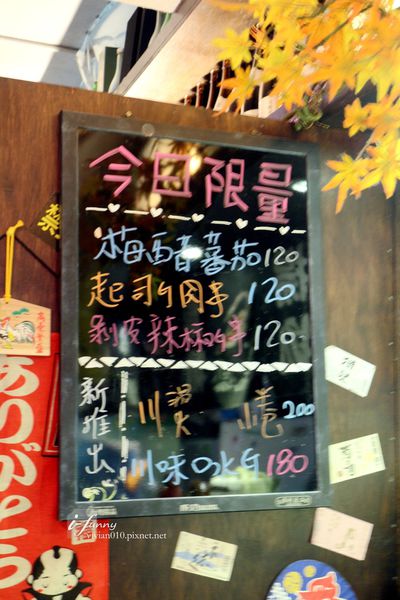 今日限量
梅酒番茄120
起司牛肉串 120
剝皮辣椒牛串 120
新推出
川燙 小卷 200
川味 180
ありがとう
i-funny
vivian010.pixnet.net